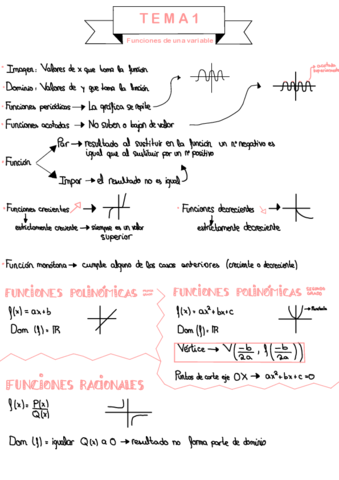 TEMA 1
Funciones de una variable
· Imagen: Valores de x que toma la función
· Dominio: Valores de y que toma la función
· Funciones periódicas → La gráfica se repite
· Funciones acotadas → No suben o bajan de valor
· Función
Par → resultado al sustituir en la función un nº negativo es
igual que al sustituir por un nº positivo
Impar → el resultado no es igual
· Funciones crecientes
estrictamente creciente → siempre es un valor
superior
· Funciones decrecientes
estrictamente decreciente
· Función monótona → cumple alguno de los casos anteriores (creciente o decreciente)
FUNCIONES POLINÓMICAS =
f(x) = ax+b
Dom (f) = IR
FUNCIONES POLINÓMICAS SEGUNDO GRADO
f(x) = ax²+bx+c
→ Parábola
Dom (f) = IR
Vértice → V(-b/2a , f(-b/2a))
Puntos de corte eje OX → ax²+bx+c=0
FUNCIONES RACIONALES
f(x) = P(x)/Q(x)
Dom (f) = igualar Q(x) a 0 → resultado no forma parte de dominio